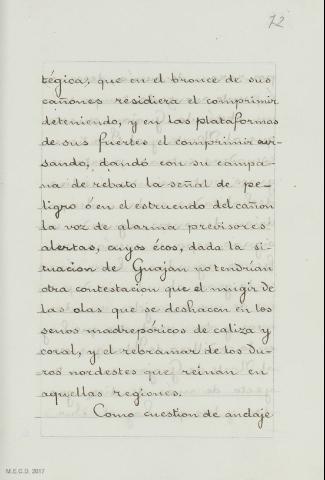 72
tégica, que en el bronce de sus
cañones residiera el comprimir
deteniendo, y en las plataformas
de sus fuertes el comprimir avi-
sando, dando con su campa-
na de rebato la señal de pe-
ligro ó en el estruendo del cañon
la voz de alarma previsores
alertas, cuyos écos, dada la si-
tuacion de Guajan no tendrian
otra contestacion que el mugir de
las olas que se deshacen en los
senos madrepóricos de caliza y
coral, y el rebramar de los du-
ros nordestes que reinan en
aquellas regiones.
Como cuestion de andaje
M.E.C.D. 2017